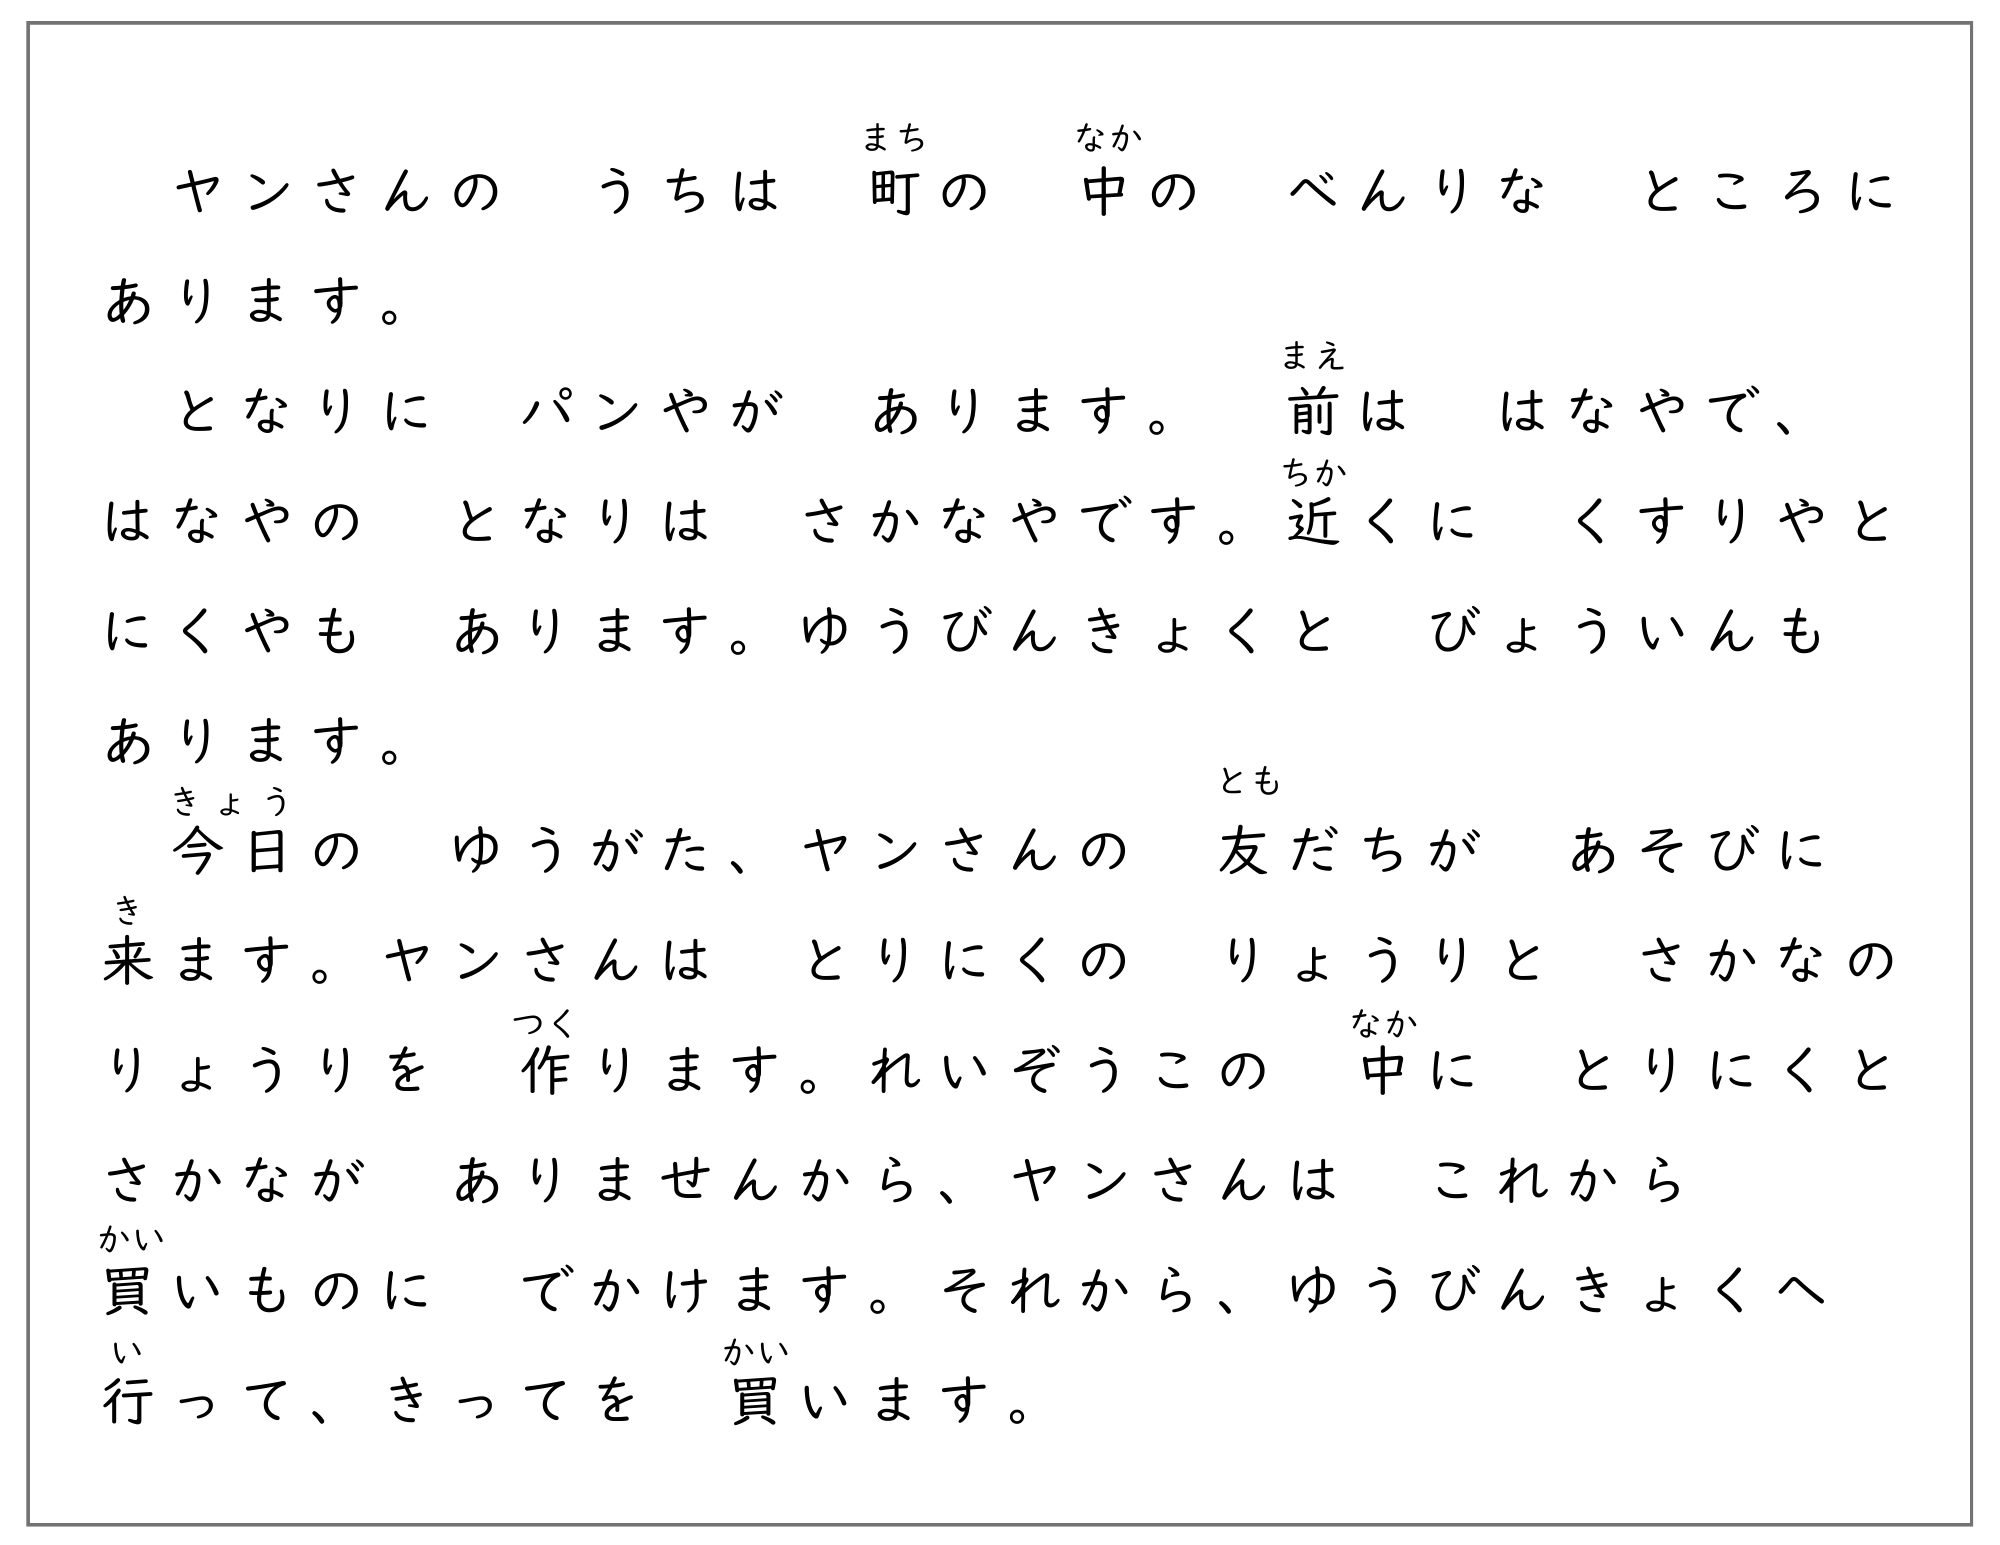 まち なか
ヤンさんの うちは 町の 中の べんりな ところに
あります。
まえ
となりに パンやが あります。 前は はなやで、
ちか
はなやの となりは さかなやです。近くに くすりやと
にくやも あります。ゆうびんきょくと びょういんも
あります。
きょう とも
今日の ゆうがた、ヤンさんの 友だちが あそびに
き
来ます。ヤンさんは とりにくの りょうりと さかなの
つく なか
りょうりを 作ります。れいぞうこの 中に とりにくと
さかなが ありませんから、ヤンさんは これから
かい
買いものに でかけます。それから、ゆうびんきょくへ
い かい
行って、きってを 買います。